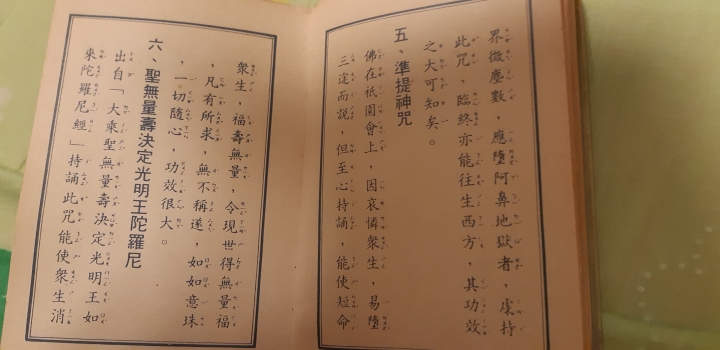 界微塵數，應墮阿鼻地獄者，虔持
此咒，臨終亦能往生西方，其功效
之大可知矣。
五、準提神咒
佛在祇園會上，因哀憐衆生，易墮
三途而說，但至心持誦，能使短命
衆生，福壽無量，令現世得無量福
，凡有所求，無不稱遂，如如意珠
，一切隨心，功效很大。
六、聖無量壽決定光明王陀羅尼
出自「大乘聖無量壽決定光明王如
來陀羅尼經」持誦此咒能使衆生消